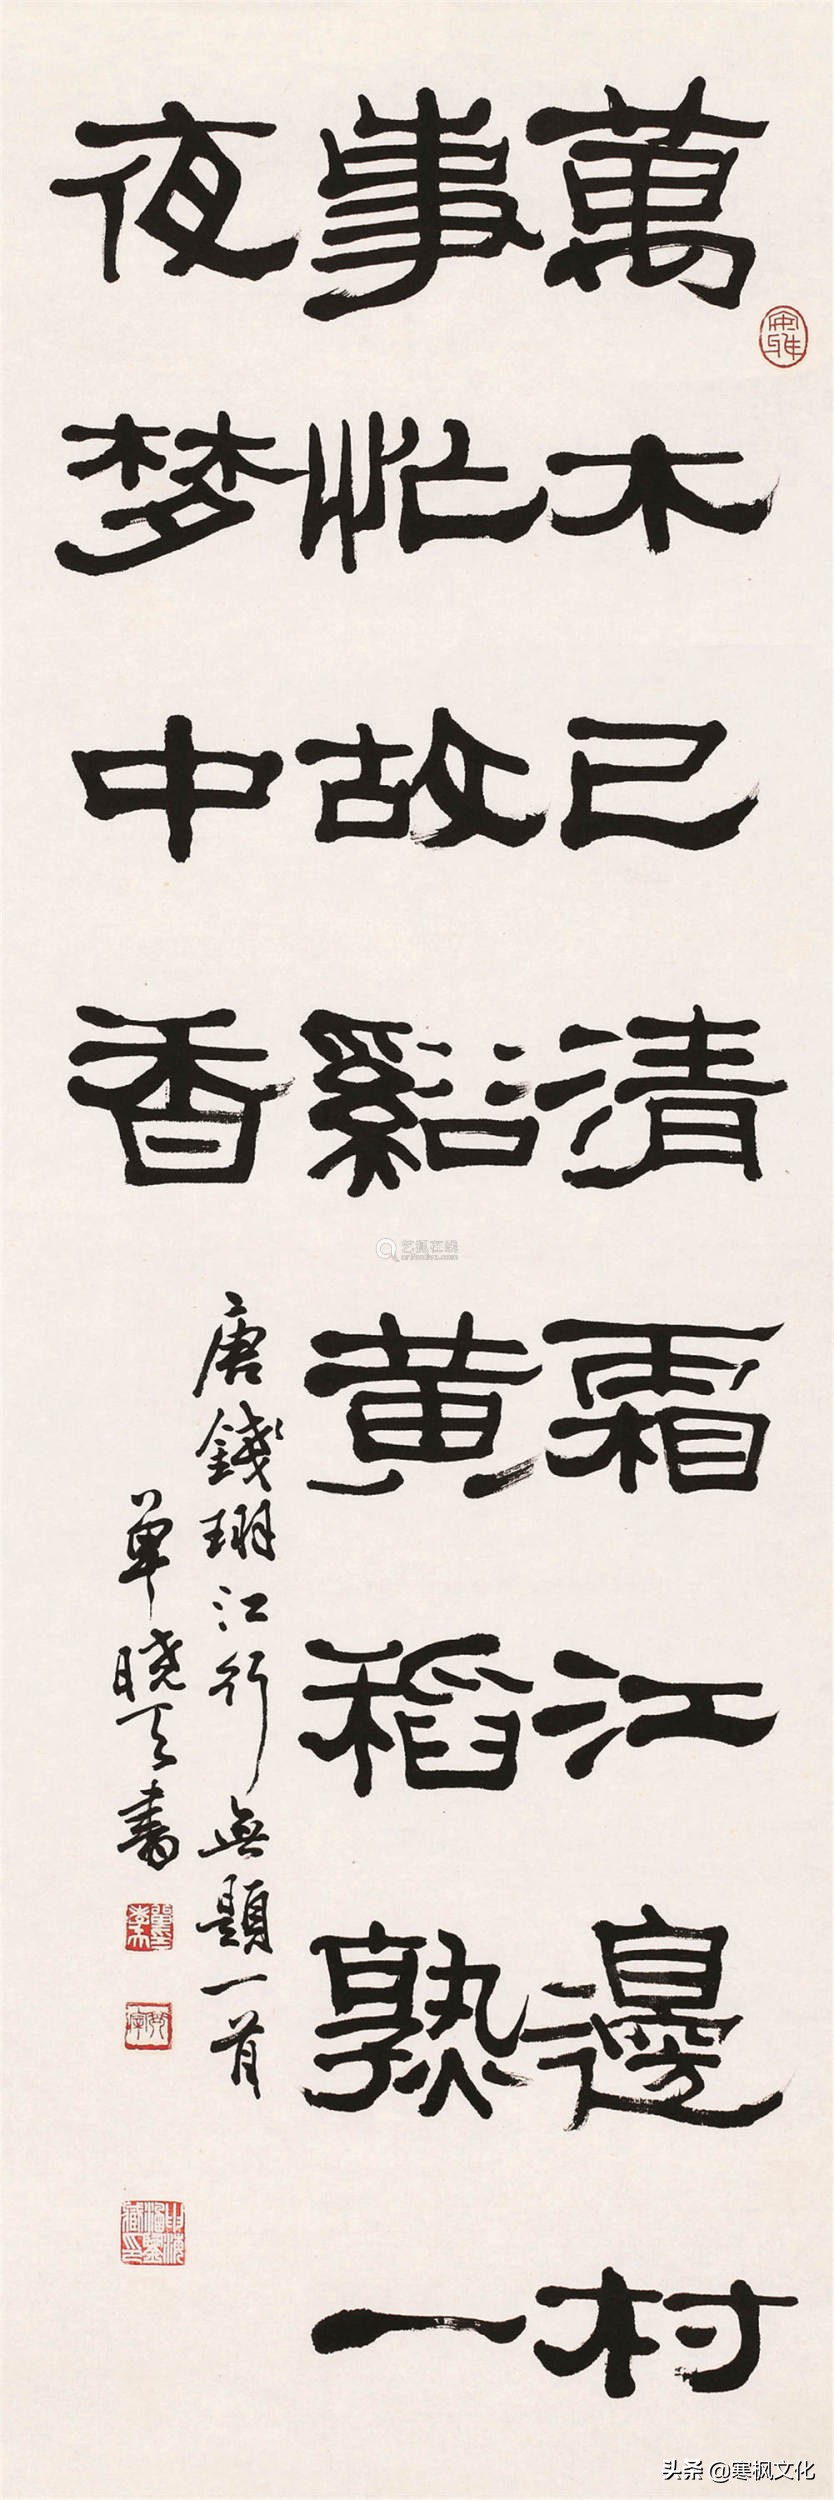 萬木已清霜江邊村
事忙故谿黄稻熟一
夜梦中香
唐錢珝江行無題一首
單曉天書
头条 @寒枫文化